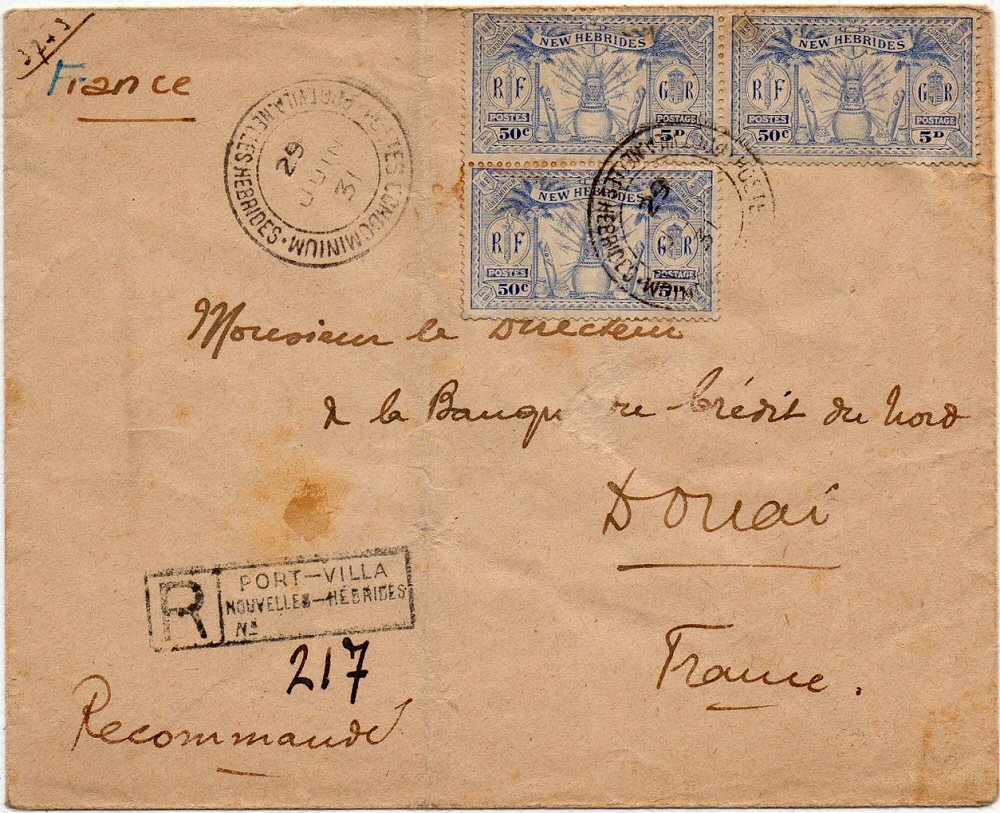 37+3
France
NEW HEBRIDES
RF GR
POSTES POSTAGE
50c 5D
NEW HEBRIDES
RF GR
POSTES POSTAGE
50c 5D
NEW HEBRIDES
RF GR
POSTES POSTAGE
50c
CONDOMINIUM · HEBRIDES
29
JUIN
31
POSTE
HEBRIDES
29
Monsieur le Directeur
de la Banque du Crédit du Nord
DOUAI
France.
R PORT-VILLA
NOUVELLES-HÉBRIDES
No
217
Recommandé